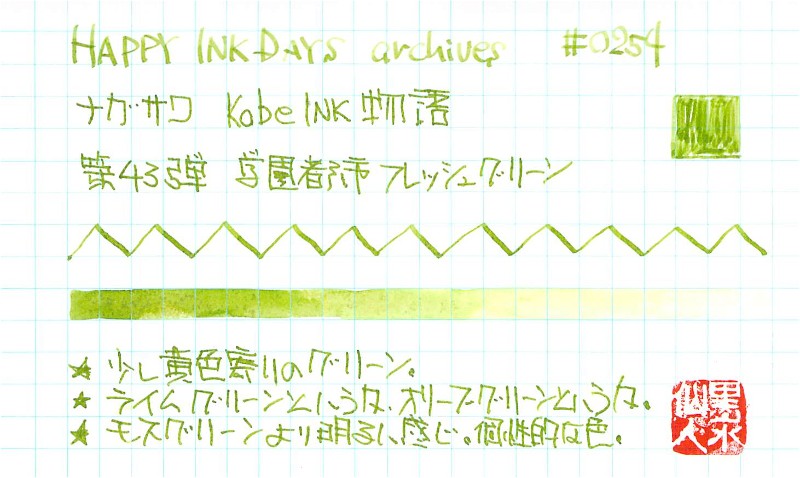 HAPPY INK DAYS archives #0254
ナガサワ Kobe INK 物語
第43弾 学園都市フレッシュグリーン
★ 少し黄色寄りのグリーン。
★ ライムグリーンというか、オリーブグリーンというか。
★ モスグリーンより明るい感じ。個性的な色。